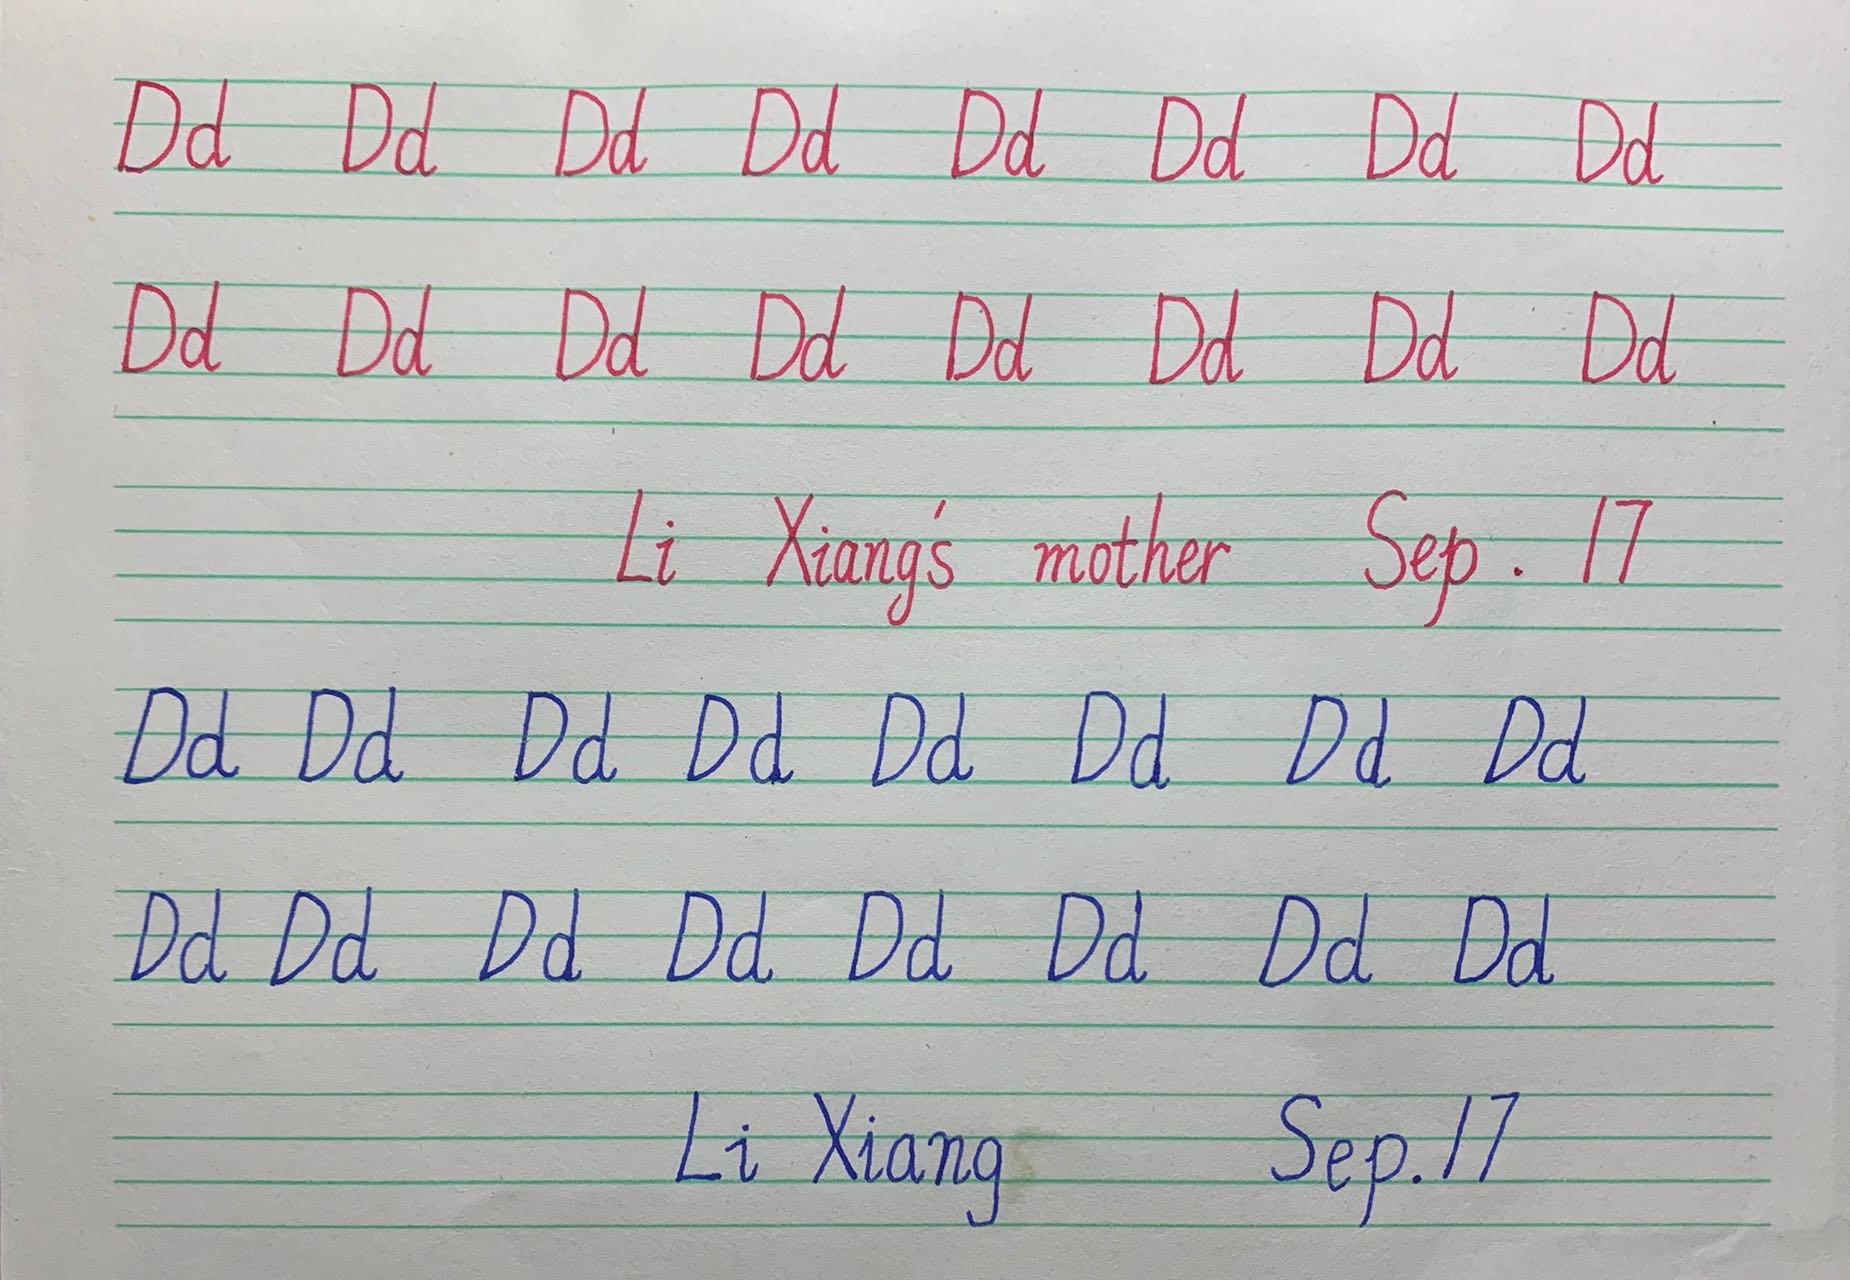 Dd Dd Dd Dd Dd Dd Dd Dd
Dd Dd Dd Dd Dd Dd Dd Dd
Li Xiang's mother Sep. 17
Dd Dd Dd Dd Dd Dd Dd Dd
Dd Dd Dd Dd Dd Dd Dd Dd
Li Xiang Sep. 17